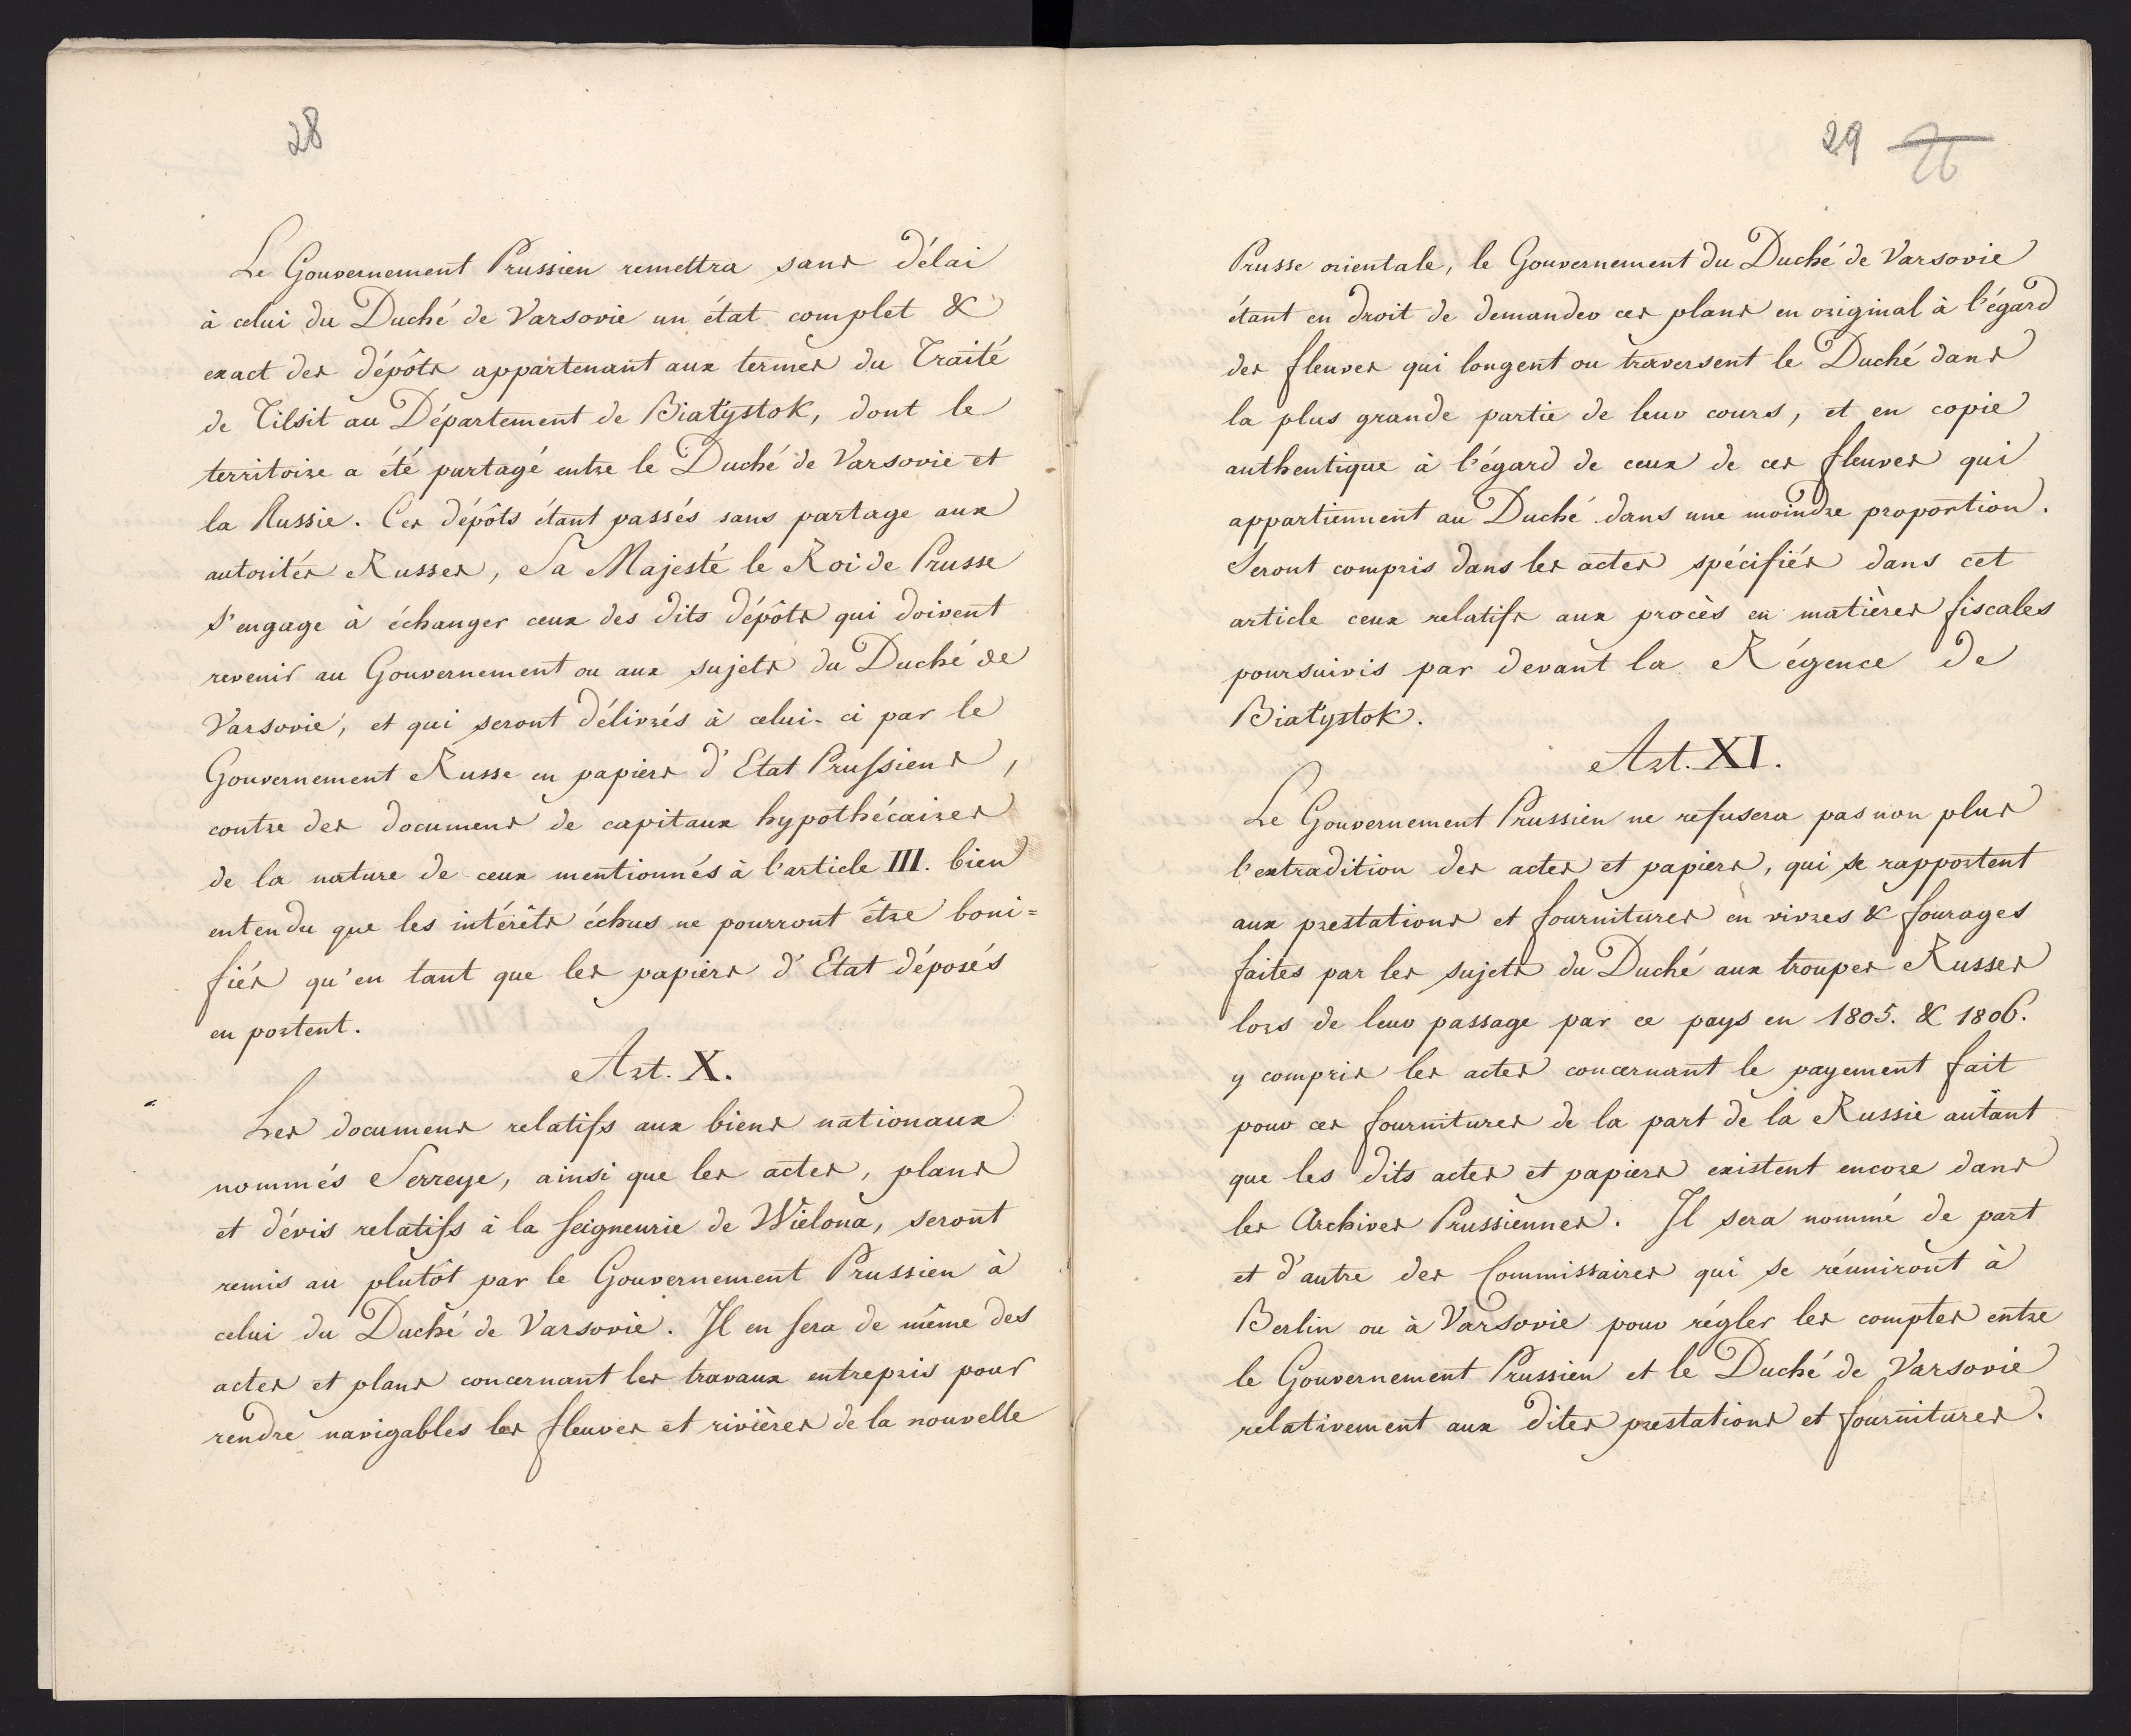 28
Le Gouvernement Prussien remettra sans délai
à celui du Duché de Varsovie un état complet &
exact des dépôts appartenant aux termes du Traité
de Tilsit au Département de Białystok, dont le
territoire a été partagé entre le Duché de Varsovie et
la Russie. Ces dépôts étant passés sans partage aux
autorités Russes, Sa Majesté le Roi de Prusse
s'engage à échanger ceux des dits dépôts qui doivent
revenir au Gouvernement ou aux sujets du Duché de
Varsovie, et qui seront délivrés à celui-ci par le
Gouvernement Russe en papiers d'Etat Prussiens,
contre des documens de capitaux hypothécaires
de la nature de ceux mentionnés à l'article III. bien
entendu que les intérêts échus ne pourront être boni=
fiés qu'en tant que les papiers d'Etat déposés
en portent.
Art. X.
Les documens relatifs aux biens nationaux
nommés Serreye, ainsi que les actes, plans
et dévis relatifs à la seigneurie de Wielona, seront
remis au plutôt par le Gouvernement Prussien à
celui du Duché de Varsovie. Il en sera de même des
actes et plans concernant les travaux entrepris pour
rendre navigables les fleuves et rivières de la nouvelle
29 26
Prusse orientale, le Gouvernement du Duché de Varsovie
étant en droit de demander ces plans en original à l'égard
des fleuves qui longent ou traversent le Duché dans
la plus grande partie de leur cours, et en copie
authentique à l'égard de ceux de ces fleuves qui
appartiennent au Duché dans une moindre proportion.
Seront compris dans les actes spécifiés dans cet
article ceux relatifs aux procès en matières fiscales
poursuivis par devant la Régence de
Białystok.
Art. XI.
Le Gouvernement Prussien ne refusera pas non plus
l'extradition des actes et papiers, qui se rapportent
aux prestations et fournitures en vivres & fourages
faites par les sujets du Duché aux troupes Russes
lors de leur passage par ce pays en 1805. & 1806.
y compris les actes concernant le payement fait
pour ces fournitures de la part de la Russie autant
que les dits actes et papiers existent encore dans
les Archives Prussiennes. Il sera nommé de part
et d'autre des Commissaires qui se réuniront à
Berlin ou à Varsovie pour régler les comptes entre
le Gouvernement Prussien et le Duché de Varsovie
relativement aux dites prestations et fournitures.